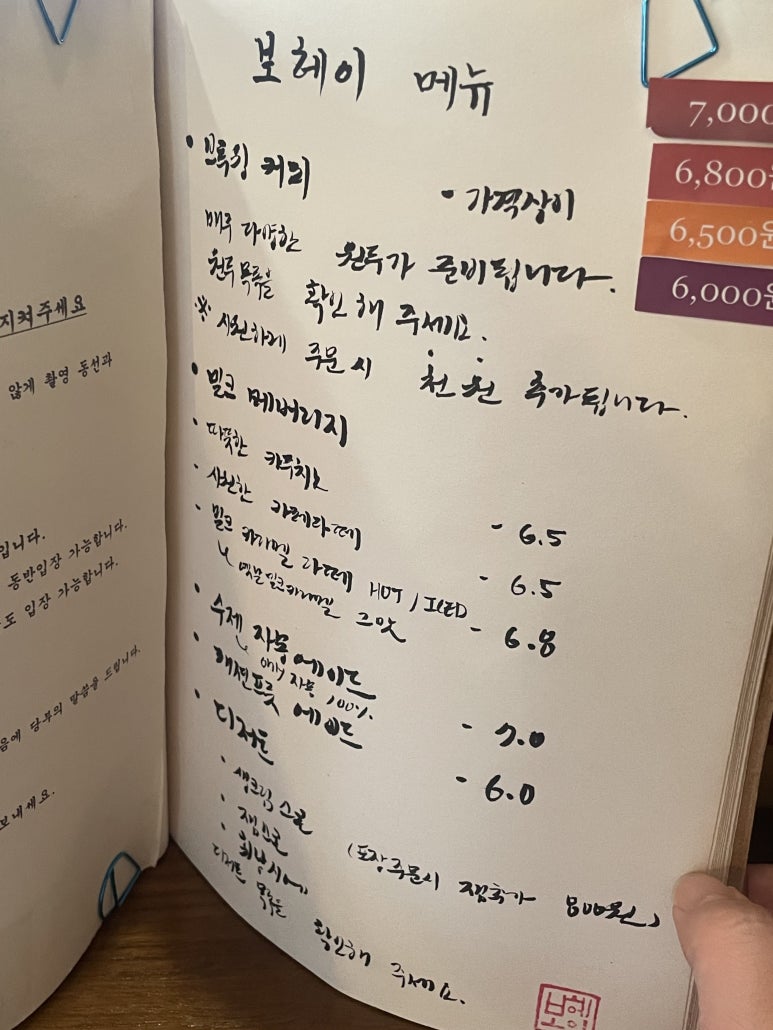 지켜주세요
않게 촬영 동선과
입니다.
동반입장 가능합니다.
도 입장 가능합니다.
음에 당부의 말씀을 드립니다.
보내세요.
보헤이 메뉴
• 브루잉 커피
- 가격상이
매주 다양한 원두가 준비됩니다.
원두 목록을 확인해 주세요.
※ 시원하게 주문시 천원 추가됩니다.
• 밀크 베버리지
• 따뜻한 카푸치노
- 6.5
• 시원한 카페라떼
- 6.5
• 밀크 카라멜 라떼 HOT / ICED
- 6.8
↳ 옛날 밀크카라멜 그맛
• 수제 자몽에이드
- 7.0
↳ only 자몽 100%
• 패션프룻 에이드
- 6.0
• 디저트
• 생크림스콘
• 잼스콘
(포장주문시 잼추가 800원)
•
디저트 목록을 확인해 주세요.
보헤이
7,000
6,800원
6,500원
6,000원